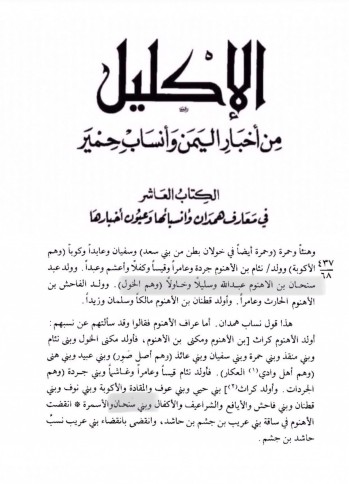 الإكليل
من أخبار اليمن وأنساب حمير
الكتاب العاشر
في معارف همدان وأنسابها وعيون أخبارها
وهنئاً وحمرة (وحمرة أيضاً في خولان بطن من بني سعد) وسفيان وعابداً وكوباً (وهم
الأكوبة) وولد/ نثام بن الأهنوم جردة وعامراً وقيساً وكفلاً وأعشم وعبداً. وولد عبد
٤٣٧
٦٨
سنحان بن الأهنوم عبدالله وسليلا وخاولاً (وهم الخول). وولد الفاحش بن
الأهنوم الحارث وعامراً. وأولد قطنان بن الأهنوم مالكاً وسلمان وزيداً.
هذا قول نساب همدان. أما عراف الأهنوم فقالوا وقد سألتهم عن نسبهم:
أولد الأهنوم كراث [بن الأهنوم ومكنى بن الأهنوم، فأولد مكنى الخول وبني نثام
وبني منقذ وبني حمرة وبني سفيان وبني عائذ (وهم أصل صَوَر) وبني عبيد وبني هنى
(وهم أهل وادي(١) العكار). فأولد نثام قيساً وعامراً وغاشياً وبني جردة (وهم
الجردات. وأولد كراث(٢)] بني حيي وبني عوف والمقادة والأكوبة وبني نوف وبني
قطنان وبني فاحش والأيافع والشراعيف والأكفال وبني سنحان والأسمرة * انقضت
الأهنوم في ساقة بني عريب بن جشم بن حاشد، وانقضى بانقضاء بني عريب نسبُ
حاشد بن جشم.